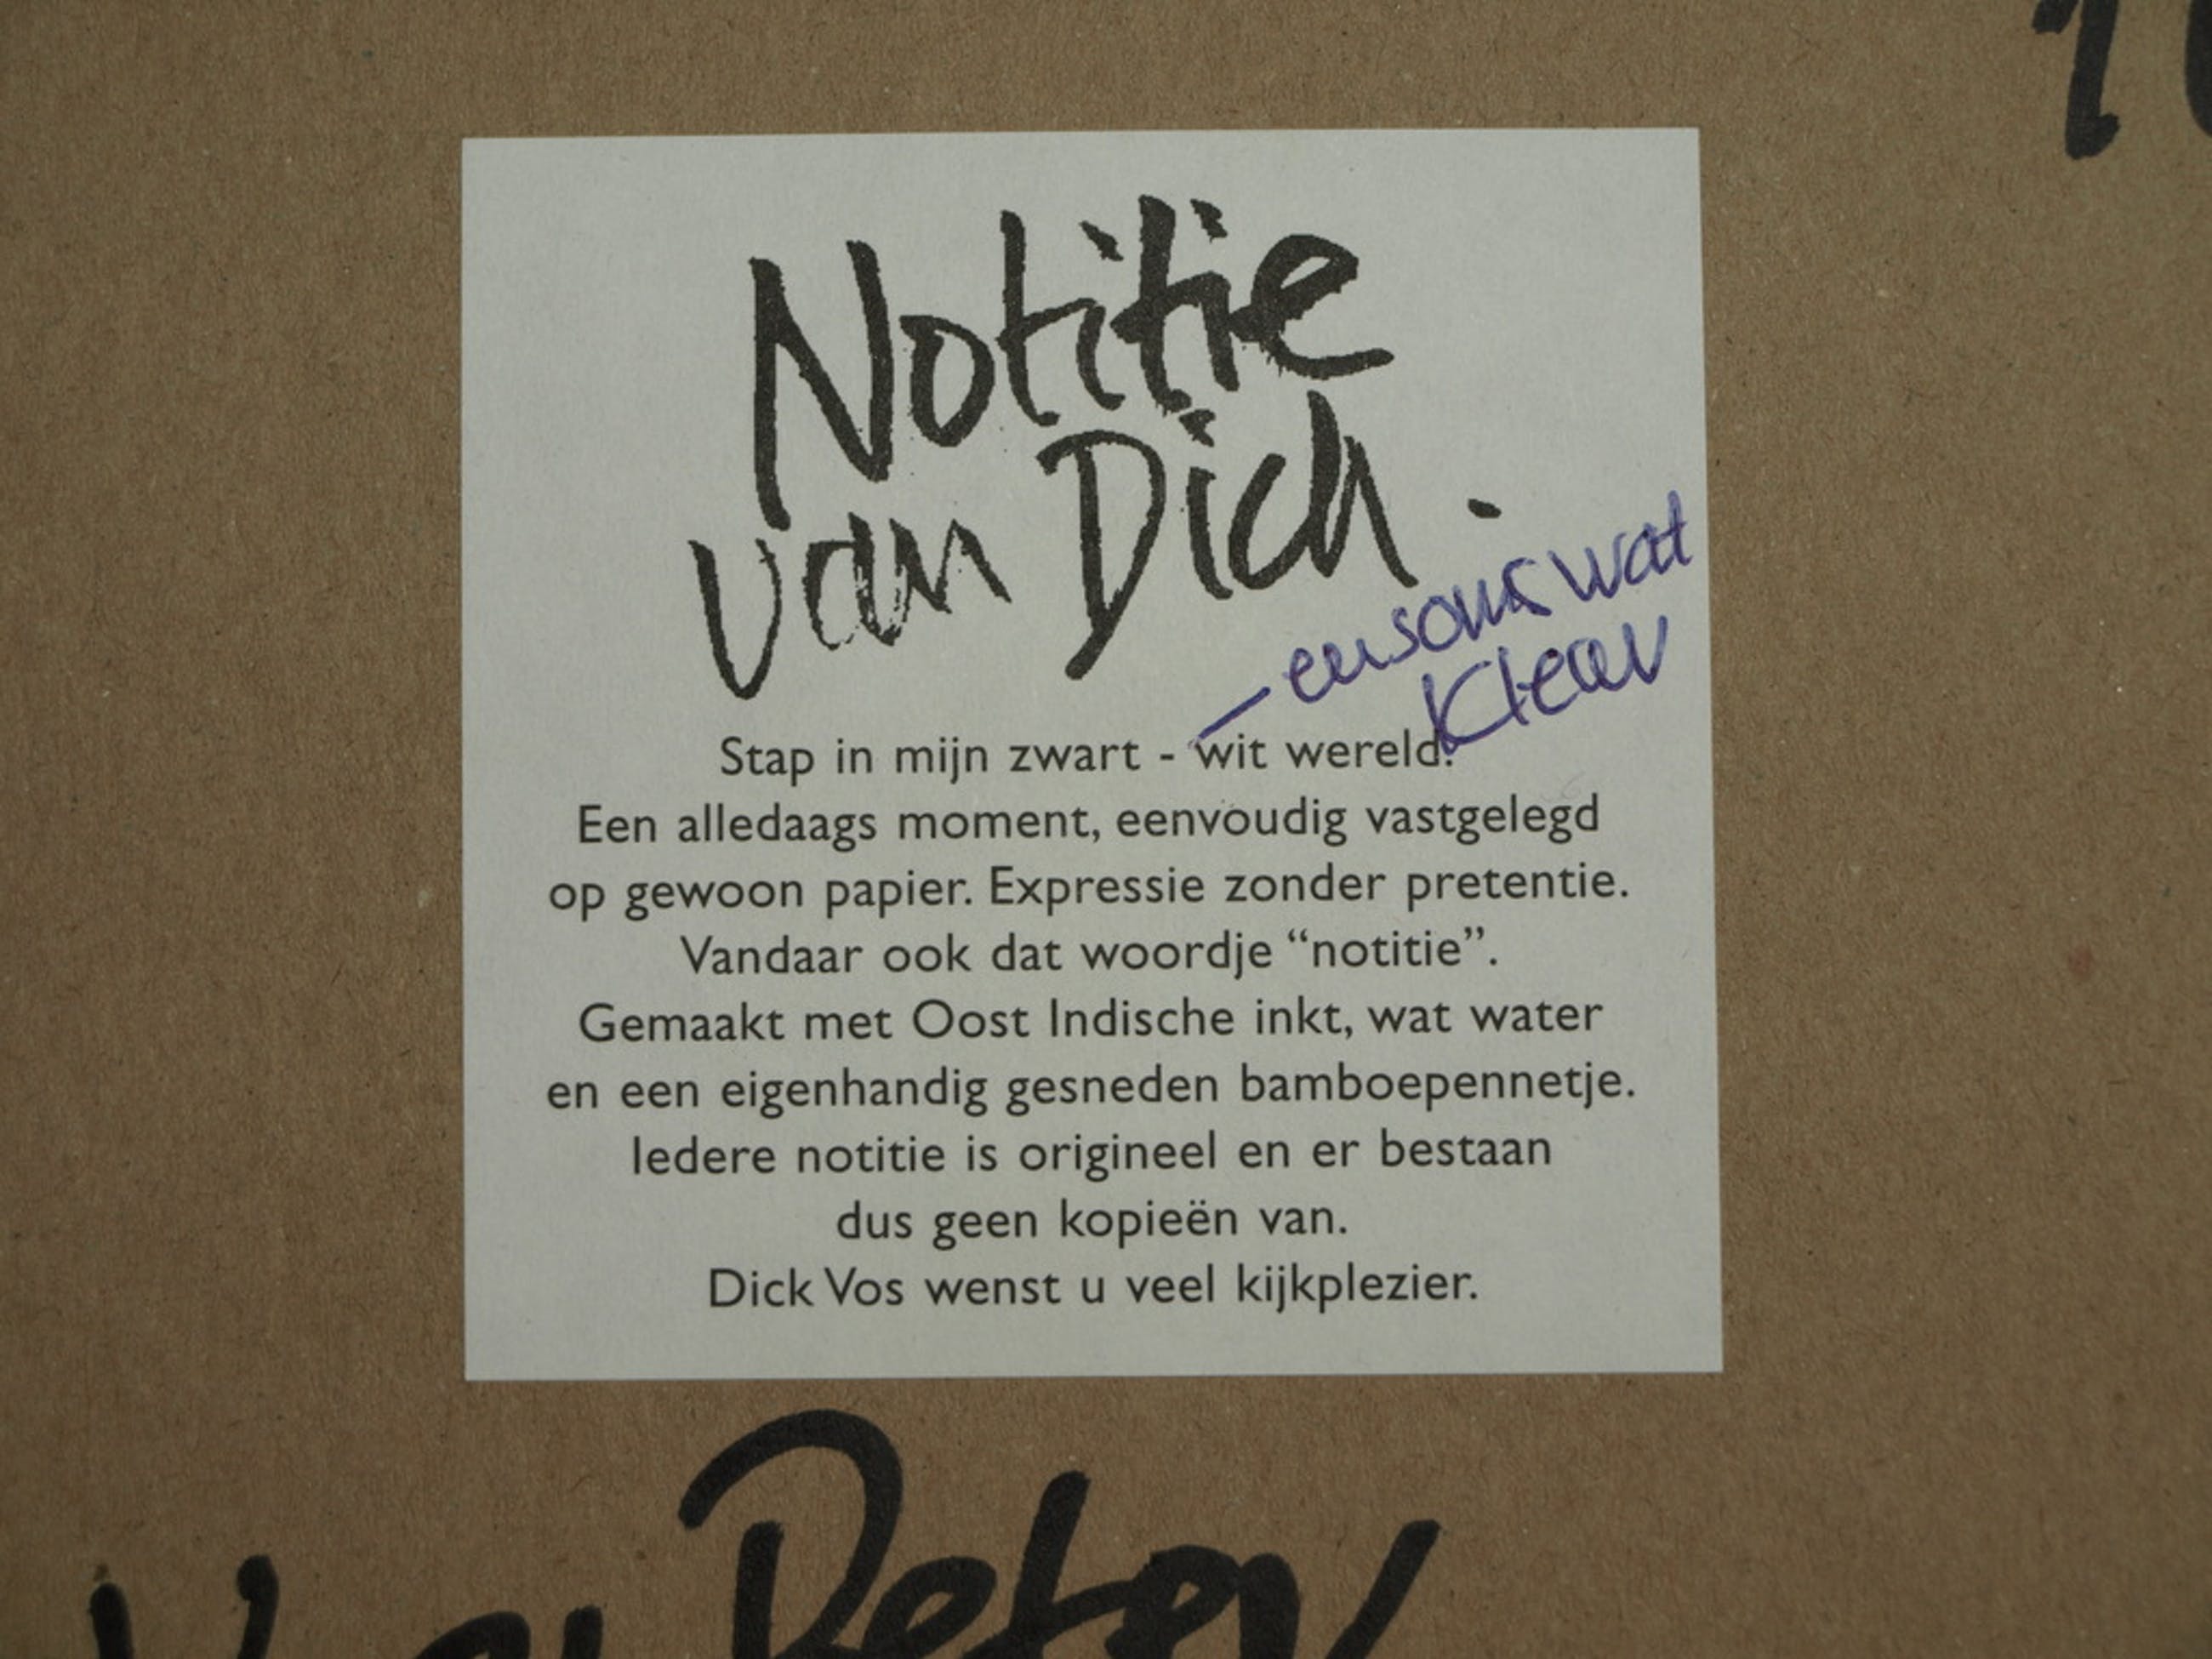 Notitie
van Dick.
- en soms wat
kleur
Stap in mijn zwart - wit wereld.
Een alledaags moment, eenvoudig vastgelegd
op gewoon papier. Expressie zonder pretentie.
Vandaar ook dat woordje “notitie”.
Gemaakt met Oost Indische inkt, wat water
en een eigenhandig gesneden bamboepennetje.
Iedere notitie is origineel en er bestaan
dus geen kopieën van.
Dick Vos wenst u veel kijkplezier.
Peter